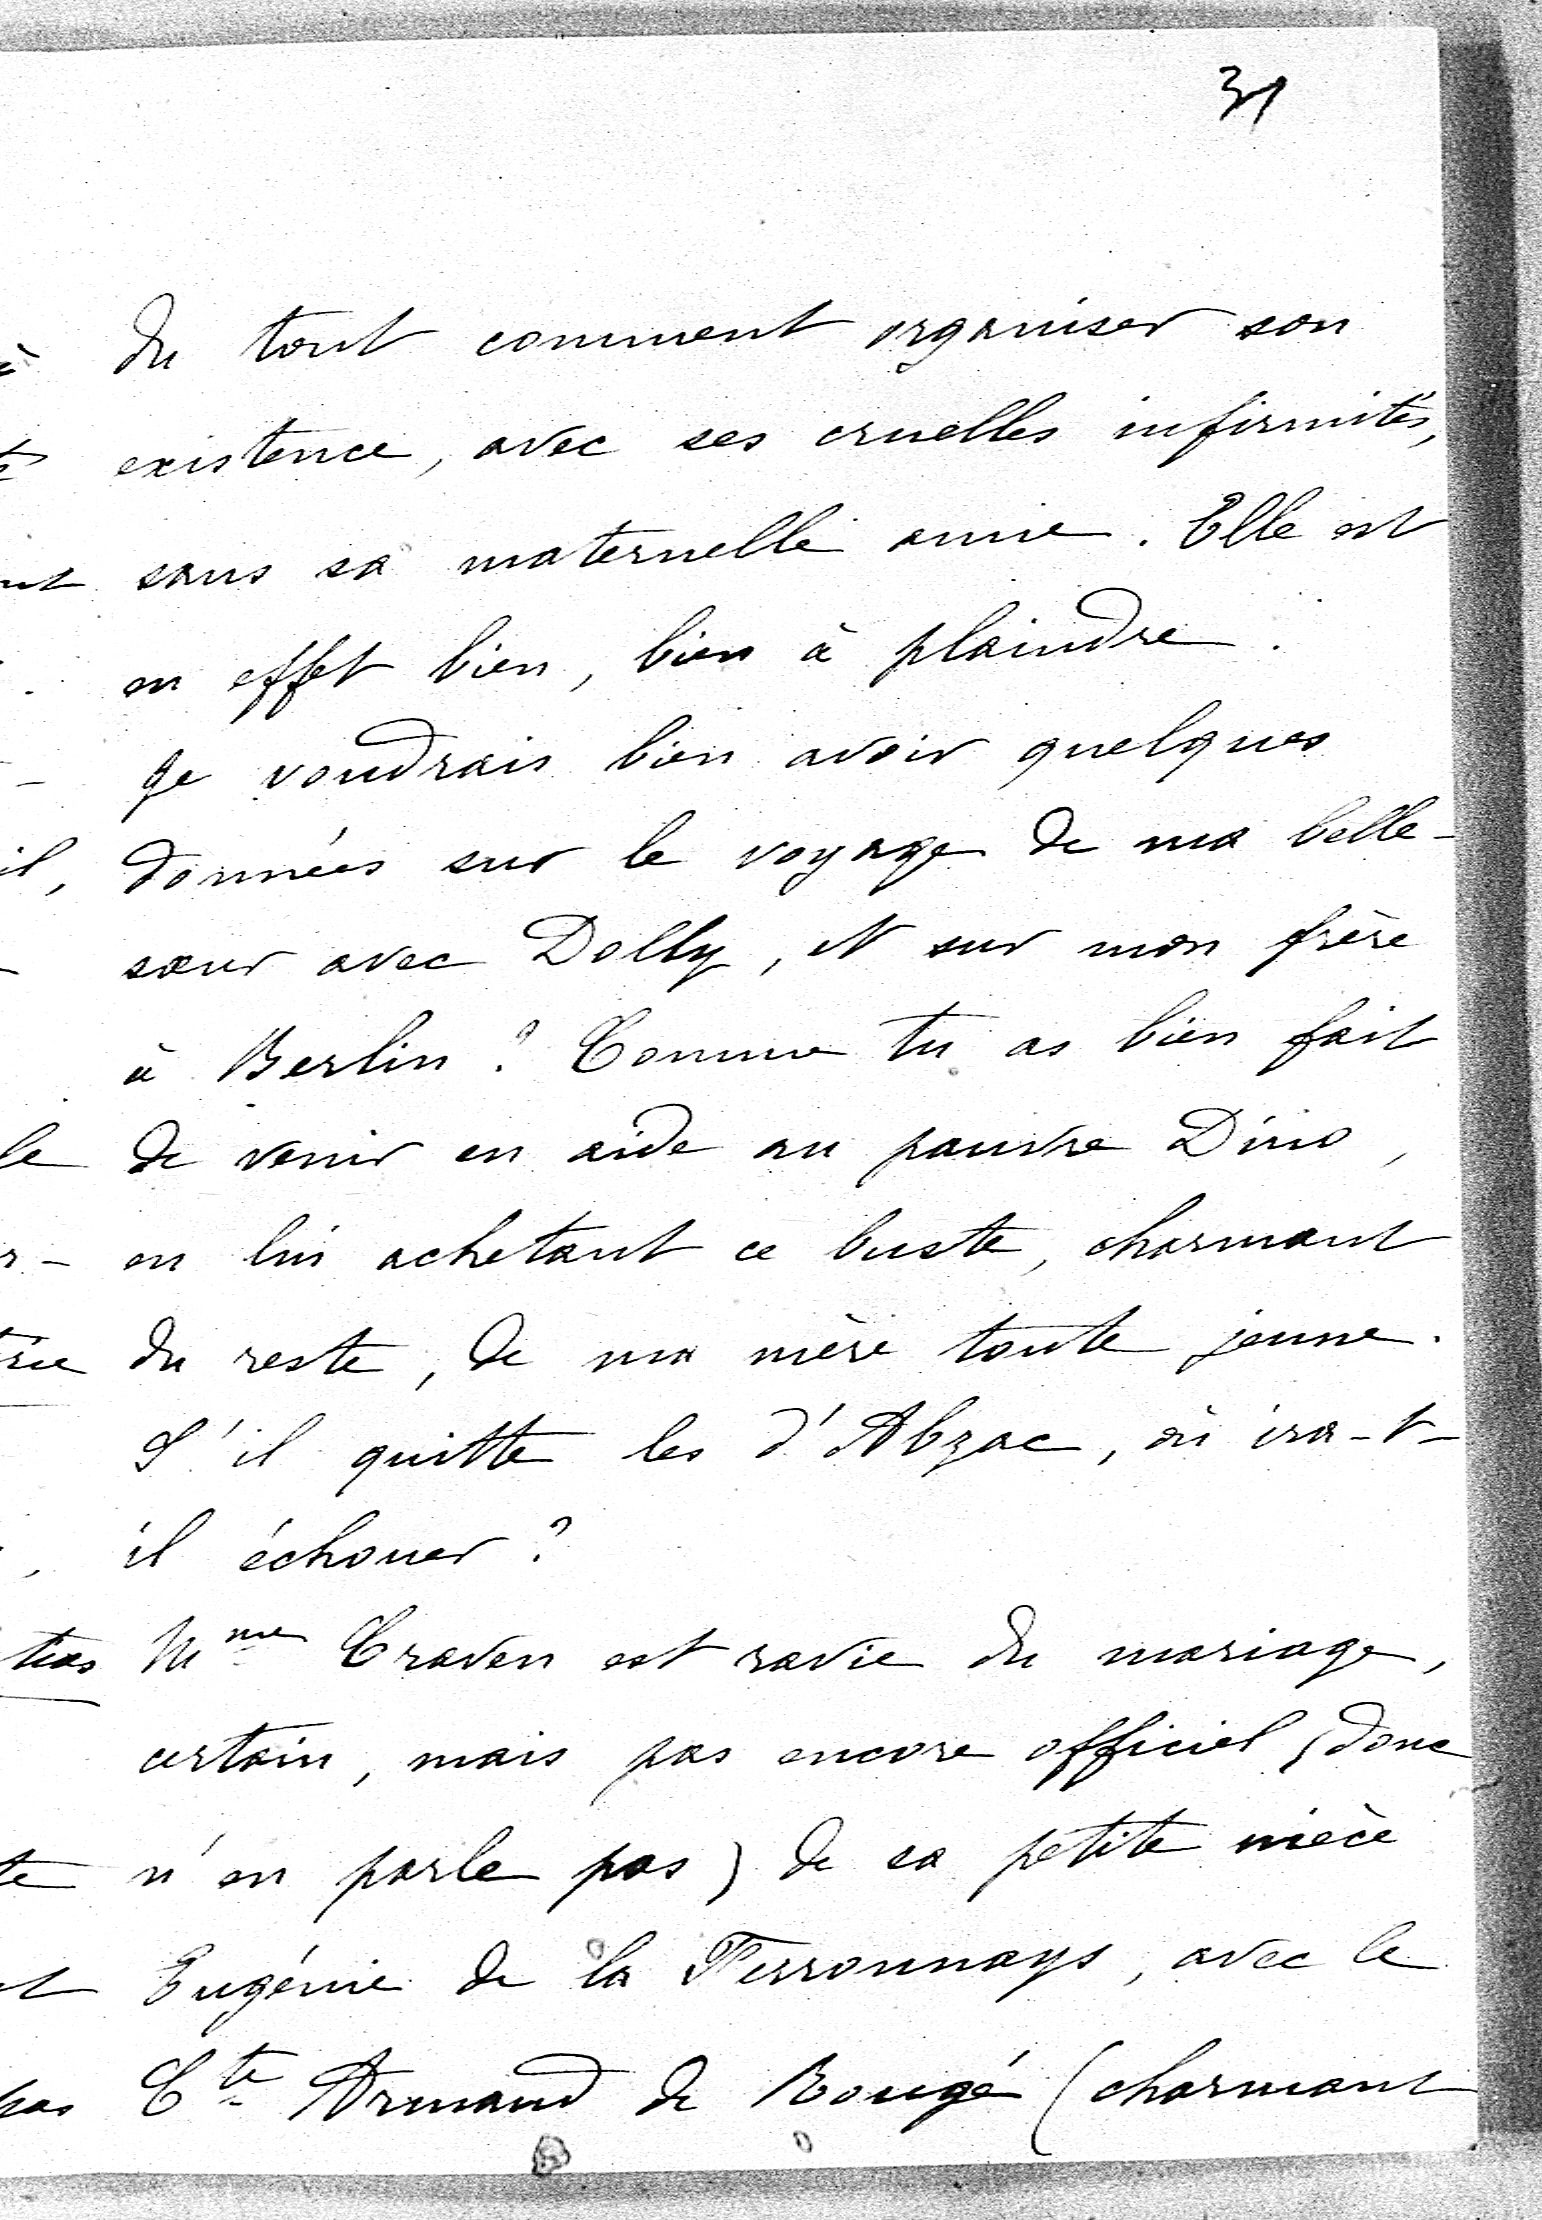 31
du tout comment organiser son
existence, avec ses cruelles infirmités,
sans sa maternelle amie. Elle est
en effet bien, bien à plaindre.
Je voudrais bien avoir quelques
données sur le voyage de ma belle-
sœur avec Dolly, et sur mon frère
à Berlin ? Comme tu as bien fait
de venir en aide au pauvre Dino,
en lui achetant ce buste, charmant
du reste, de ma mère toute jeune.
S'il quitte les d'Abzac, où ira-t-
il échouer ?
Mme Craven est ravie du mariage,
certain, mais pas encore officiel (donc
n'en parle pas) de sa petite nièce
Eugénie de la Ferronnays, avec le
Cte Armand de Rougé (charmant